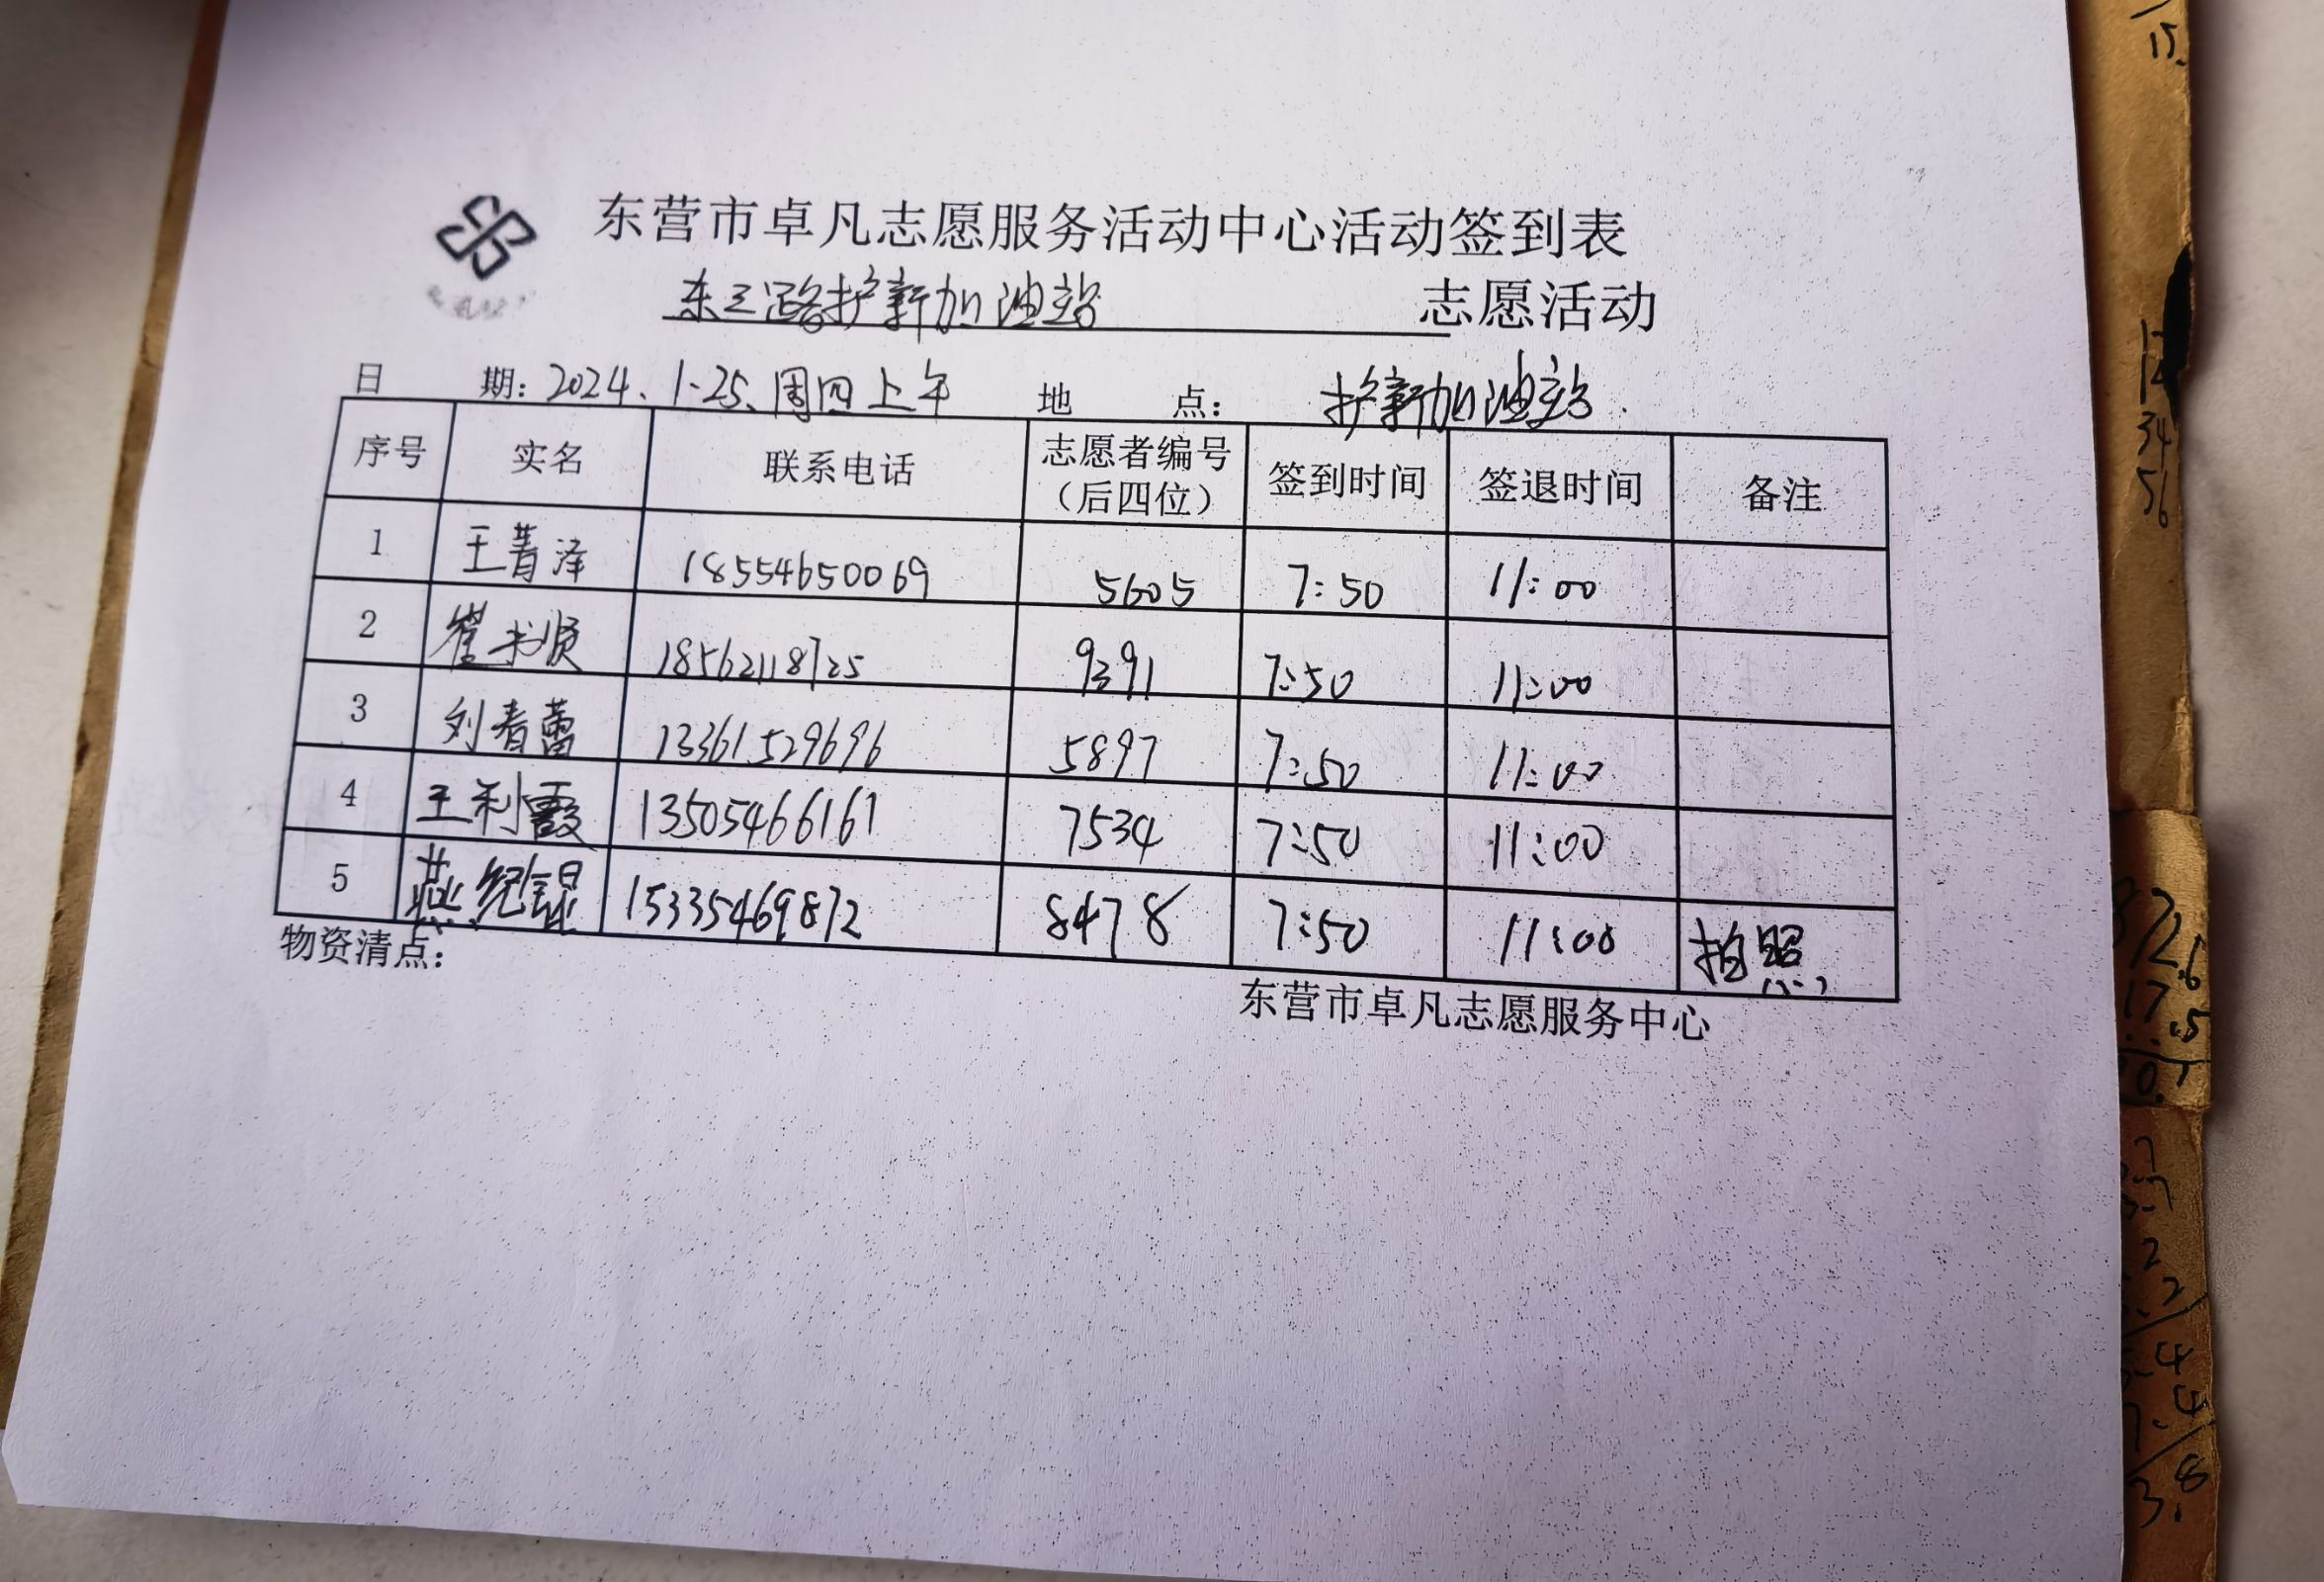 东营市卓凡志愿服务活动中心活动签到表
东三路护新加油站 志愿活动
日 期：2024、1-25、周四上午 地 点： 护新加油站.
序号 实名 联系电话 志愿者编号（后四位） 签到时间 签退时间 备注
1 王菁泽 18554650069 5605 7:50 11:00
2 崔书贤 18562118725 9391 7:50 11:00
3 刘春蕾 13361529696 5897 7:50 11:00
4 王利霞 13505466161 7534 7:50 11:00
5 燕纪锟 15335469872 8478 7:50 11:00 拍照
物资清点：
东营市卓凡志愿服务中心
15.
34
56